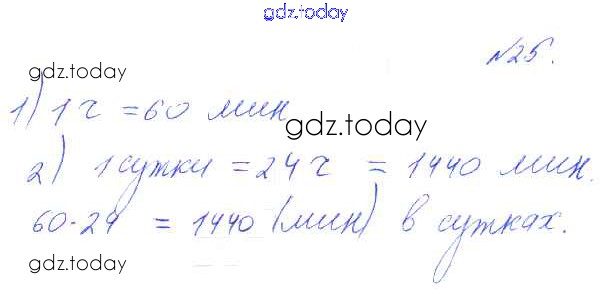 gdz.today
№25.
gdz.today
1) 1 ч = 60 мин
gdz.today
2) 1 сутки = 24 ч = 1440 мин.
60·24 = 1440 (мин) в сутках.
gdz.today